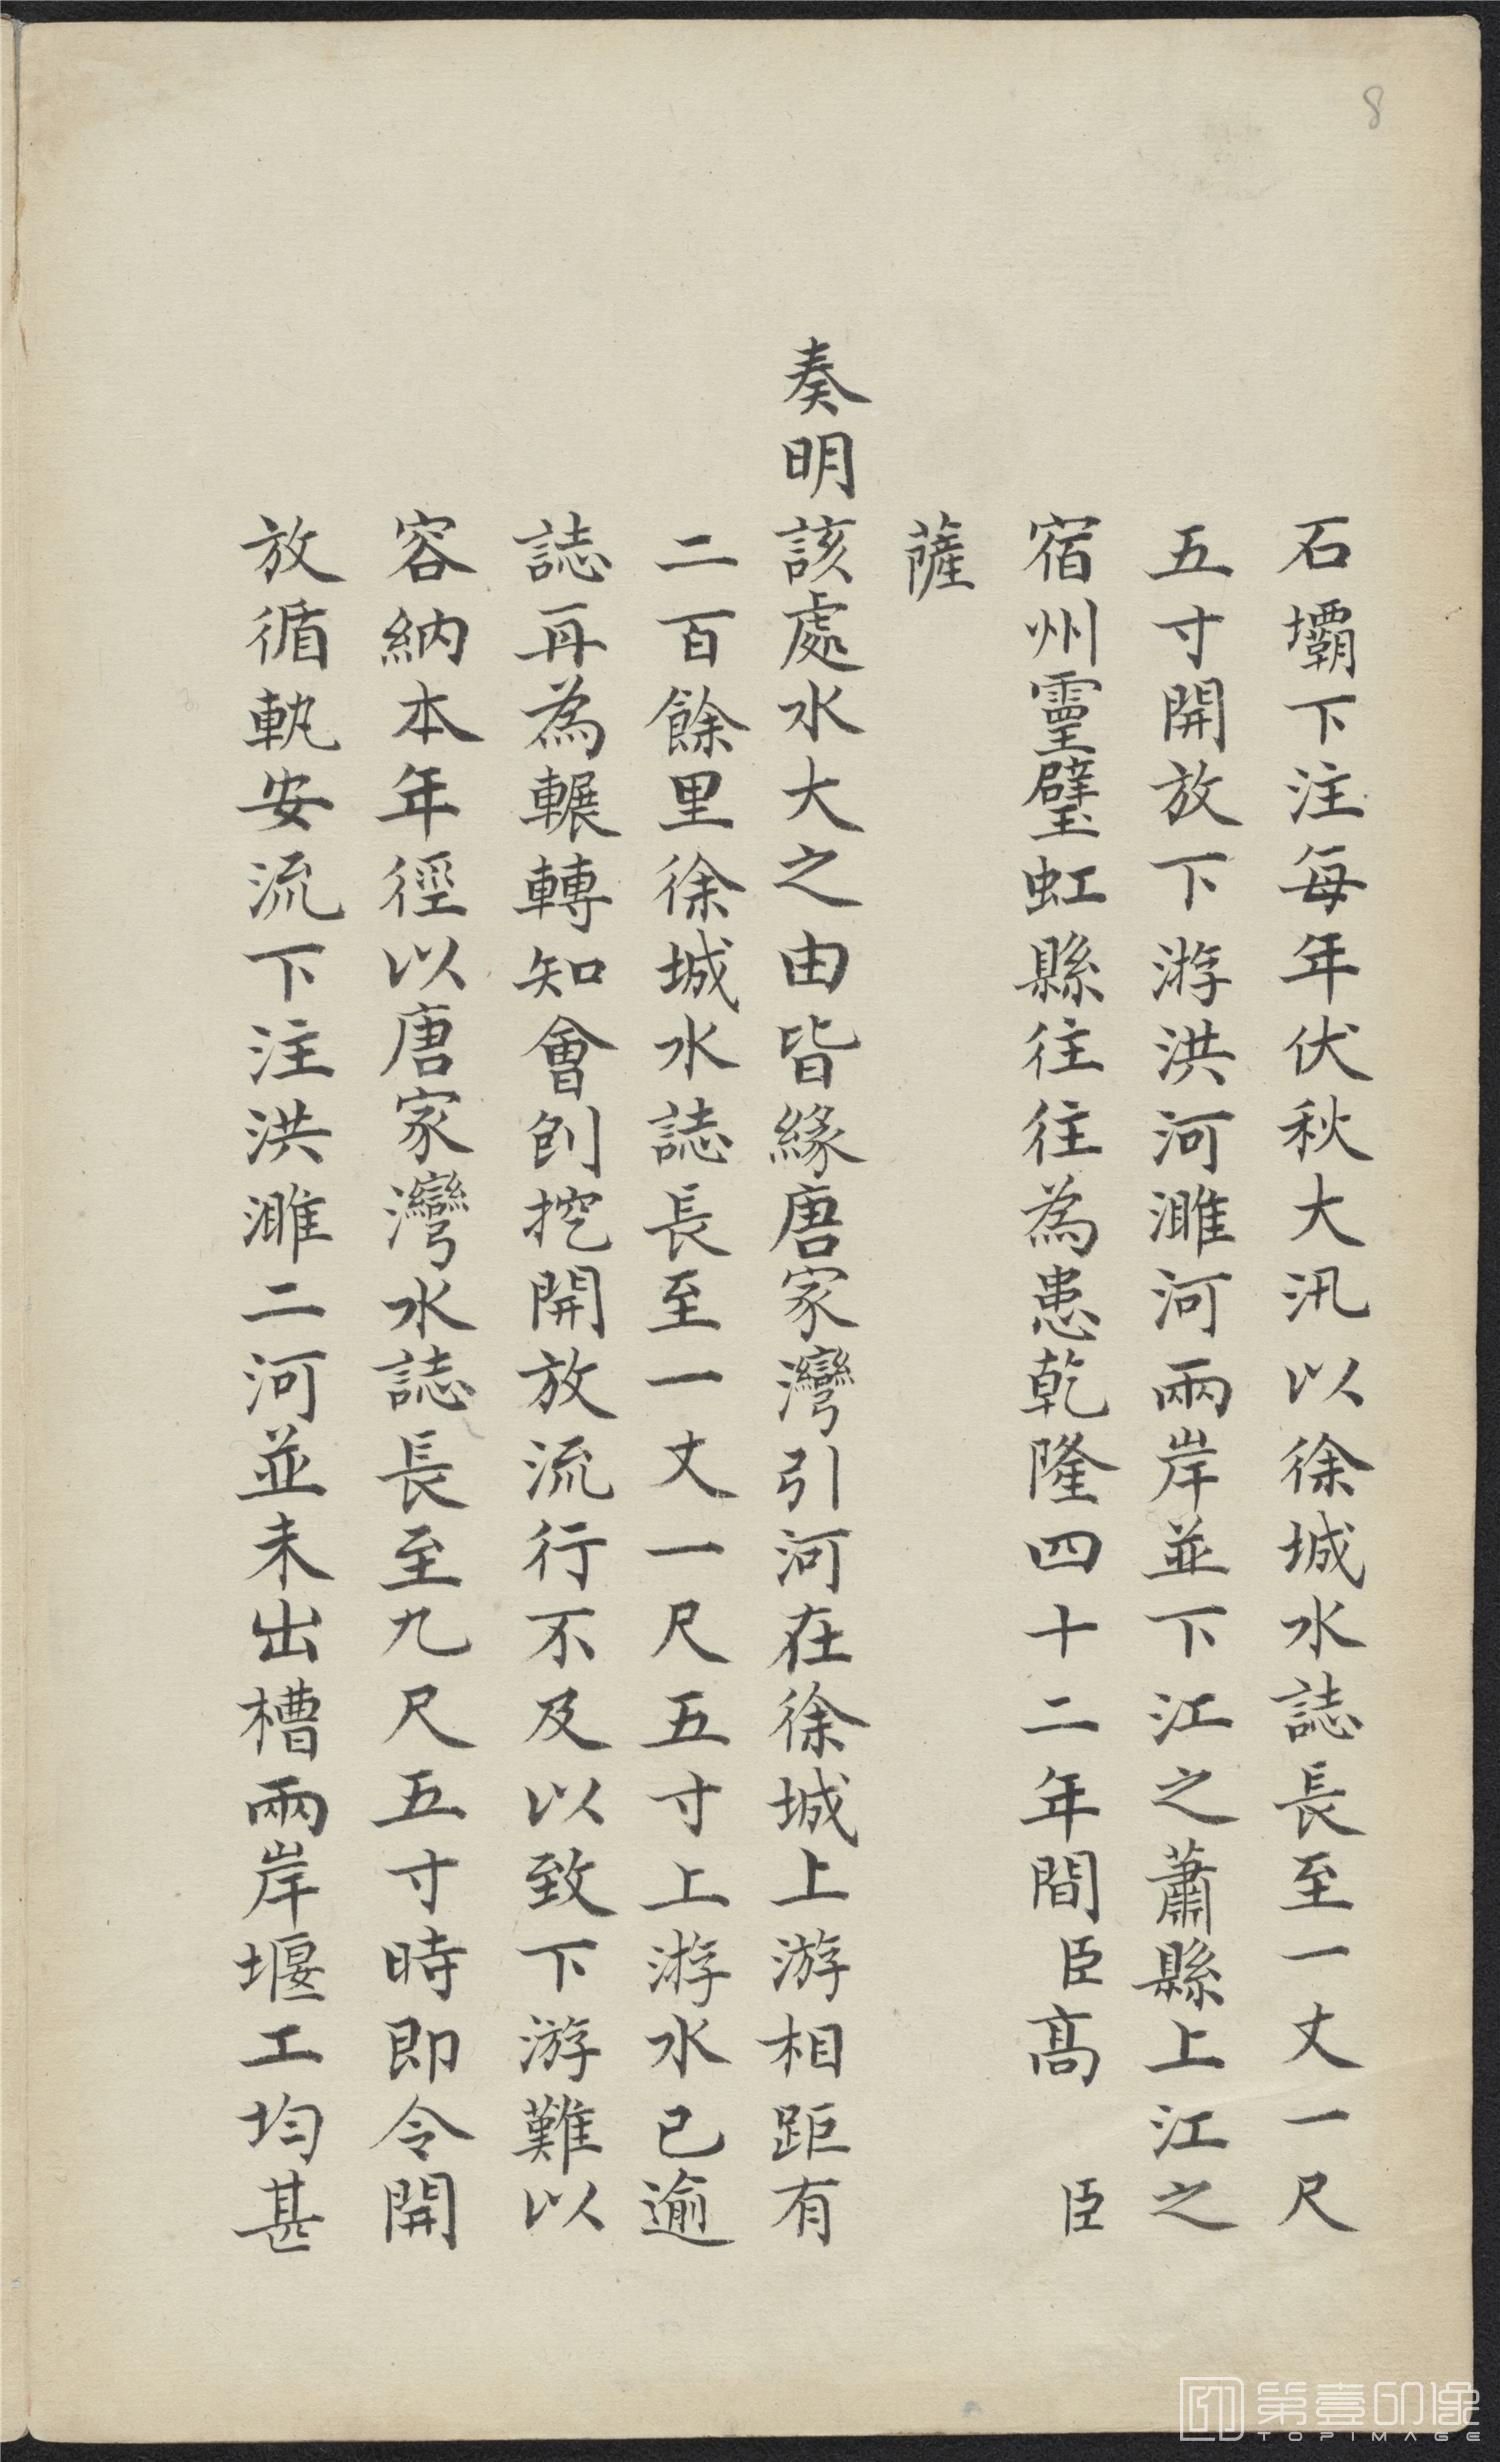 8
石壩下注每年伏秋大汛以徐城水誌長至一丈一尺
五寸開放下游洪河濉河兩岸並下江之蕭縣上江之
宿州靈璧虹縣往往為患乾隆四十二年間臣高 臣
薩
奏明該處水大之由皆緣唐家灣引河在徐城上游相距有
二百餘里徐城水誌長至一丈一尺五寸上游水已逾
誌再為輾轉知會刨挖開放流行不及以致下游難以
容納本年徑以唐家灣水誌長至九尺五寸時即令開
放循軌安流下注洪濉二河並未出槽兩岸堰工均甚
第壹印像
TOPIMAGE